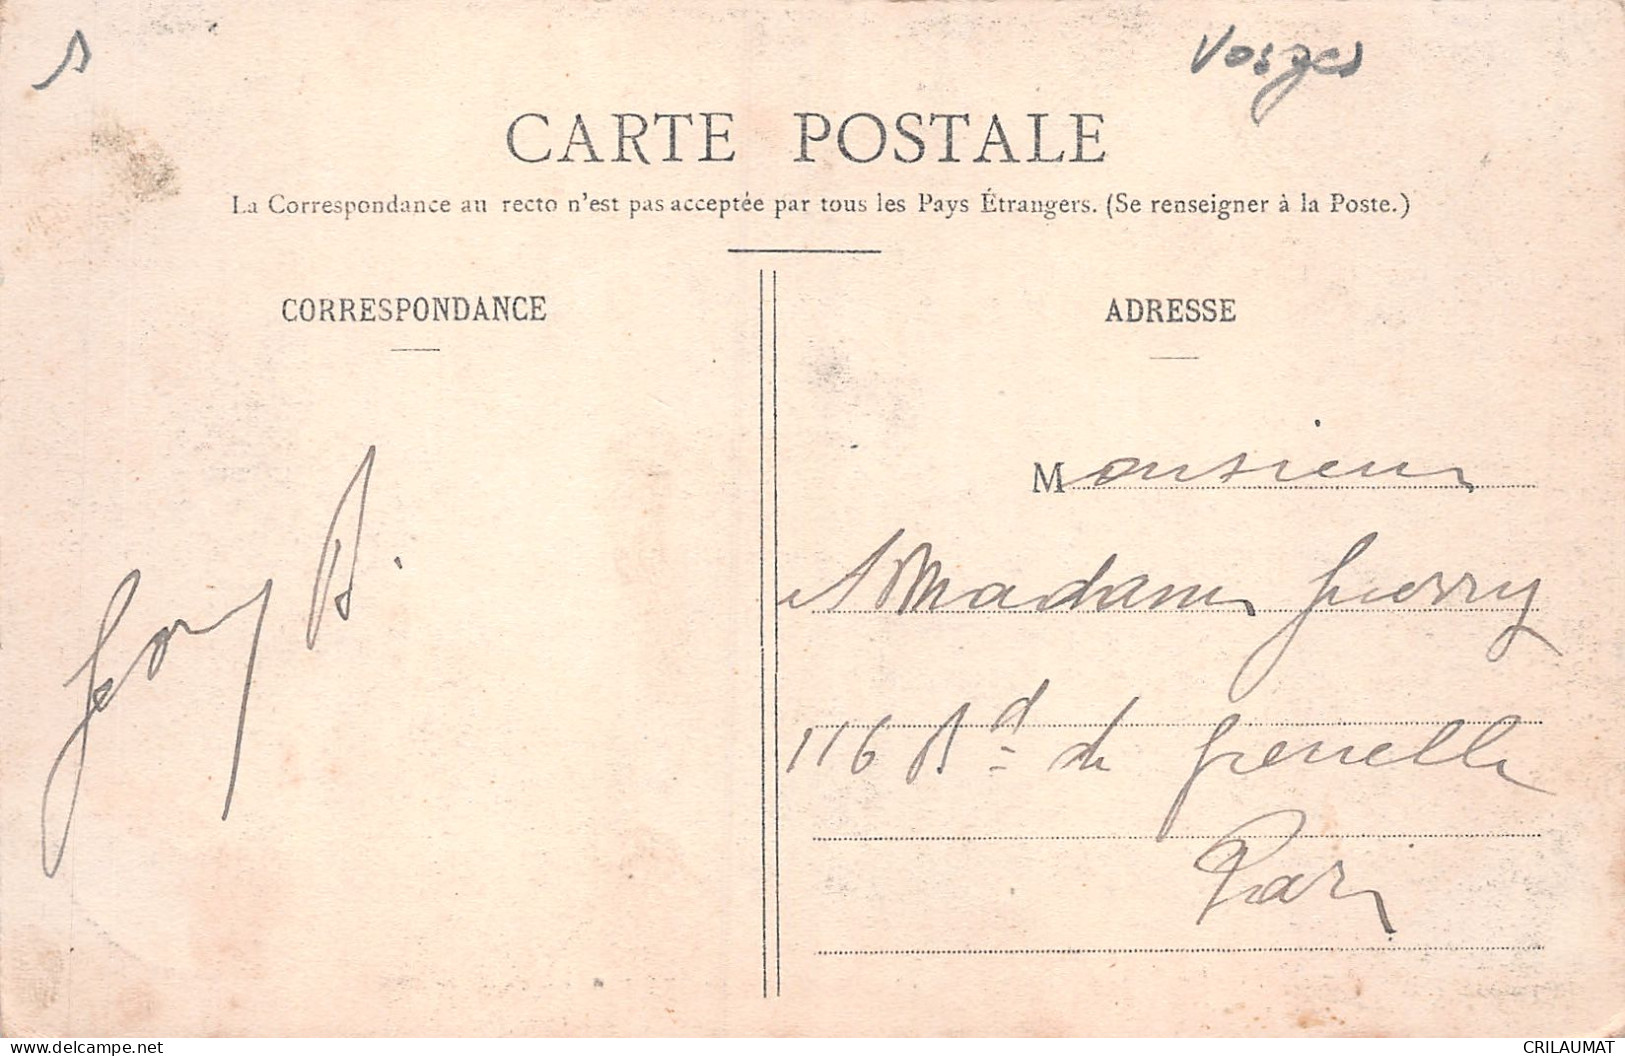 Vosges
CARTE POSTALE
La Correspondance au recto n'est pas acceptée par tous les Pays Étrangers. (Se renseigner à la Poste.)
CORRESPONDANCE
ADRESSE
Monsieur
Madame
116 Bd de Grenelle
Paris
delcampe.net
CRILAUMAT